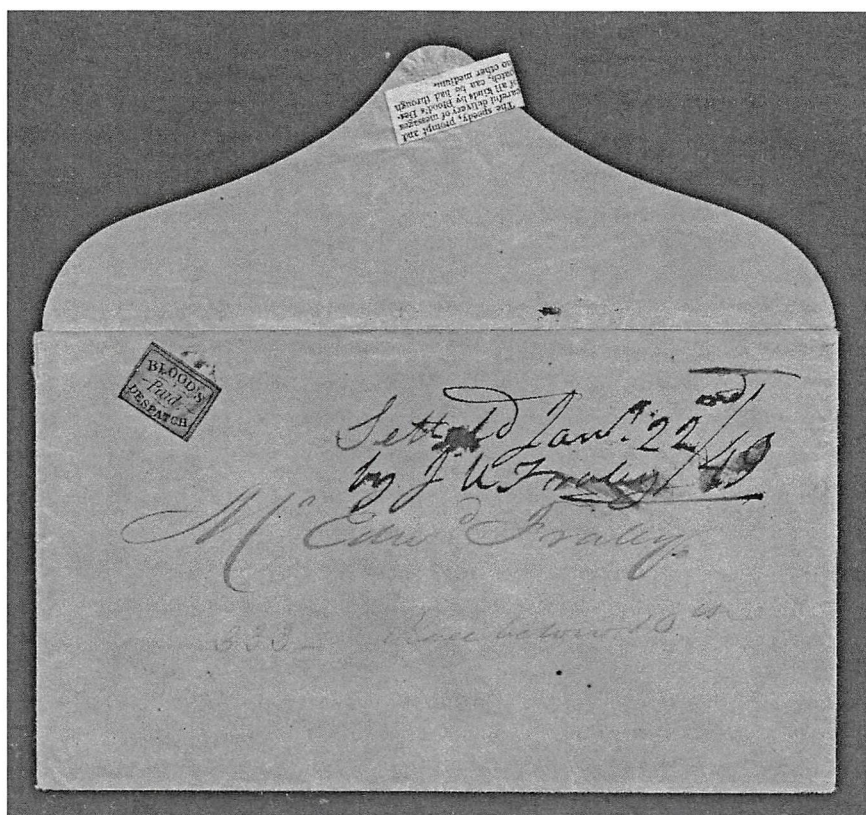 The speedy, prompt and
careful delivery of messages
of all kinds by Blood's Des-
patch, can be had through
no other medium.
BLOOD'S
Paid
DESPATCH
Settled Jany. 22nd/49
by J U Fraley
Mr Edwd Fraley
333 Race below 10th